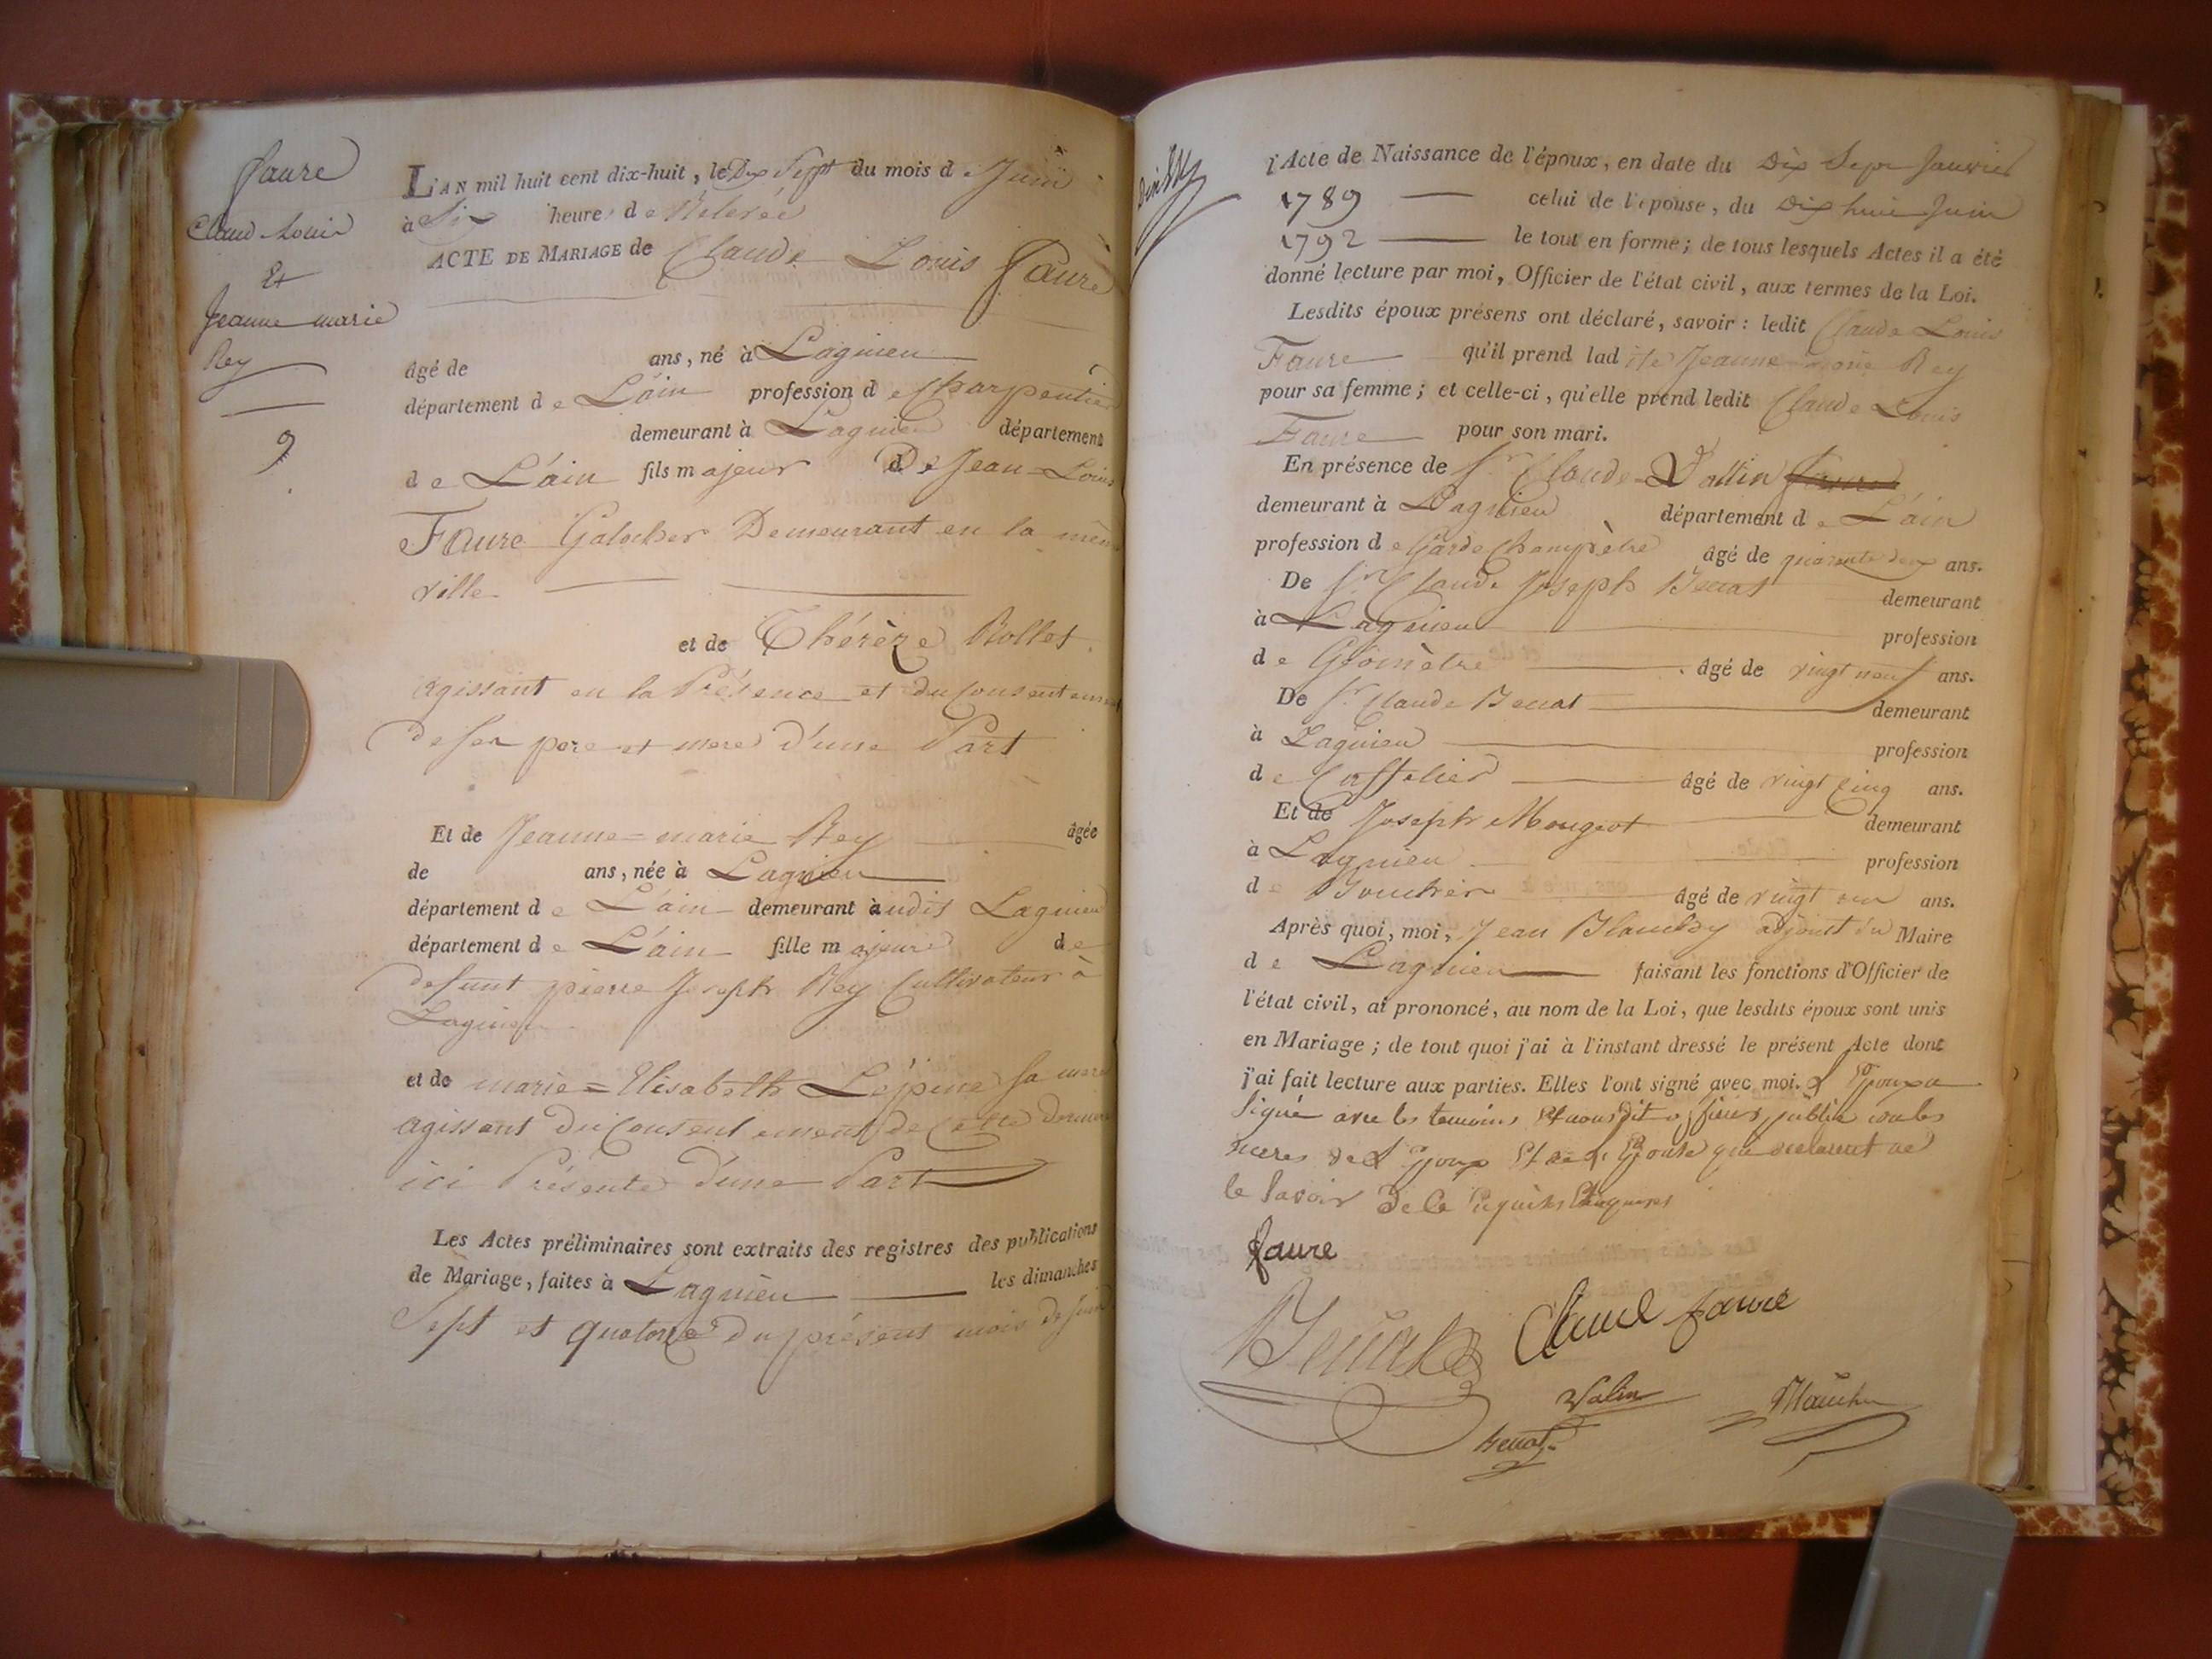 faure
Claud Louis
Et
Jeanne marie
Rey
9
L'AN mil huit cent dix-huit, le Dix Sept du mois de Juin
à Six heures de Rélevée
ACTE DE MARIAGE de Claude Louis Faure
âgé de ans, né à Lagnieu
département de L'ain profession de Charpentier
demeurant à Lagnieu département
de L'ain fils majeur De Jean = Louis
Faure Galocher Demeurant en la même
ville
et de Thérèze Rollet
agissant en la Présence et du Consentement
de ses pere et mere d'une Part
Et de Jeanne = marie Rey âgée
de ans, née à Lagnieu
département de L'ain demeurant audit Lagnieu
département de L'ain fille majeure de
defunt pierre Joseph Rey Cultivateur à
Lagnieu
et de marie = Elisabeth Lépine sa mere
agissant du Consentement de Cette derniere
ici Présente d'une Part
Les Actes préliminaires sont extraits des registres des publications
de Mariage, faites à Lagnieu les dimanches
Sept et quatorze du présent mois de juin
l'Acte de Naissance de l'époux, en date du Dix Sept Janvier
1789 celui de l'épouse, du Dix huit Juin
1792 le tout en forme; de tous lesquels Actes il a été
donné lecture par moi, Officier de l'état civil, aux termes de la Loi.
Lesdits époux présens ont déclaré, savoir: ledit Claude Louis
Faure qu'il prend ladite Jeanne marie Rey
pour sa femme; et celle-ci, qu'elle prend ledit Claude Louis
Faure pour son mari.
En présence de Sr Claude Vallin
demeurant à Lagnieu département de L'ain
profession de Garde Champètre âgé de quarante deux ans.
De Sr Claude Joseph demeurant
à Lagnieu profession
de Géomètre âgé de vingt neuf ans.
De Sr Claude demeurant
à Lagnieu profession
de âgé de vingt Cinq ans.
Et de Joseph Mougeot demeurant
à Lagnieu profession
de Boucher âgé de vingt un ans.
Après quoi, moi, Jean adjoint du Maire
de Lagnieu faisant les fonctions d'Officier de
l'état civil, ai prononcé, au nom de la Loi, que lesdits époux sont unis
en Mariage; de tout quoi j'ai à l'instant dressé le présent Acte dont
j'ai fait lecture aux parties. Elles l'ont signé avec moi. L'Epoux a
Signé avec les temoins Et nous dit officier public non les
meres de L'Epoux Et de L'Epouse qui declarent ne
le savoir De Ce Enquises
faure
Claude faure
Valin